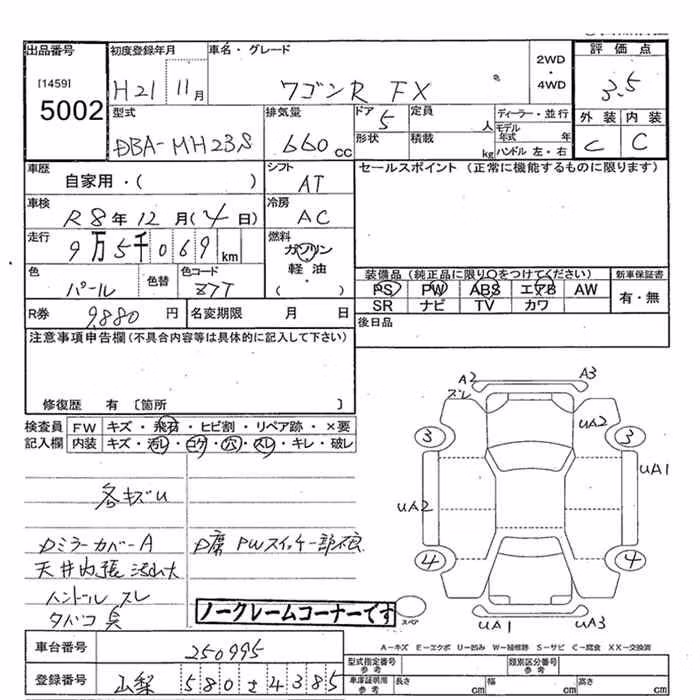 出品番号 初度登録年月 車名・グレード 2WD ・ 4WD 評価点
[1459]
5002 H21 11月 ワゴンR FX 3.5
型式 排気量 ドア 定員 人 ディーラー・並行 外装 内装
DBA-MH23S 660cc 5 形状 積載 kg モデル年式 年 ハンドル 左・右 C C
車歴 シフト セールスポイント (正常に機能するものに限ります)
自家用・( ) AT
車検 冷房
R8年12月(4日) AC
走行 燃料
9万5千069km ガソリン
軽油
( )
色 色替 色コード 装備品(純正品に限り○をつけてください) 新車保証書
パール Z7T PS PW ABS エアB AW 有・無
SR ナビ TV カワ
R券 9,880円 名変期限 月 日 後日品
注意事項申告欄(不具合内容等は具体的に記入して下さい)
修復歴 有 〔箇所 〕
検査員 FW キズ・飛石・ヒビ割・リペア跡・×要
記入欄 内装 キズ・汚レ・コゲ・穴・スレ・キレ・破レ
A2 A3
スレ
UA2
3 3
UA1
UA2
4 4
UA1 UA3
スペア
各キズU
Dミラーカバー A D席 PWスイッチ一部
天井内張
ハンドル スレ
タバコ臭
ノークレームコーナーです
A－キズ E－エクボ U－凹み W－補修跡 S－サビ C－腐食 XX－交換済
車台番号 250995
型式指定番号 参考 類別区分番号 参考
登録番号 山梨 580 さ 4385
車庫証明用 参考 長さ cm 幅 cm 高さ cm